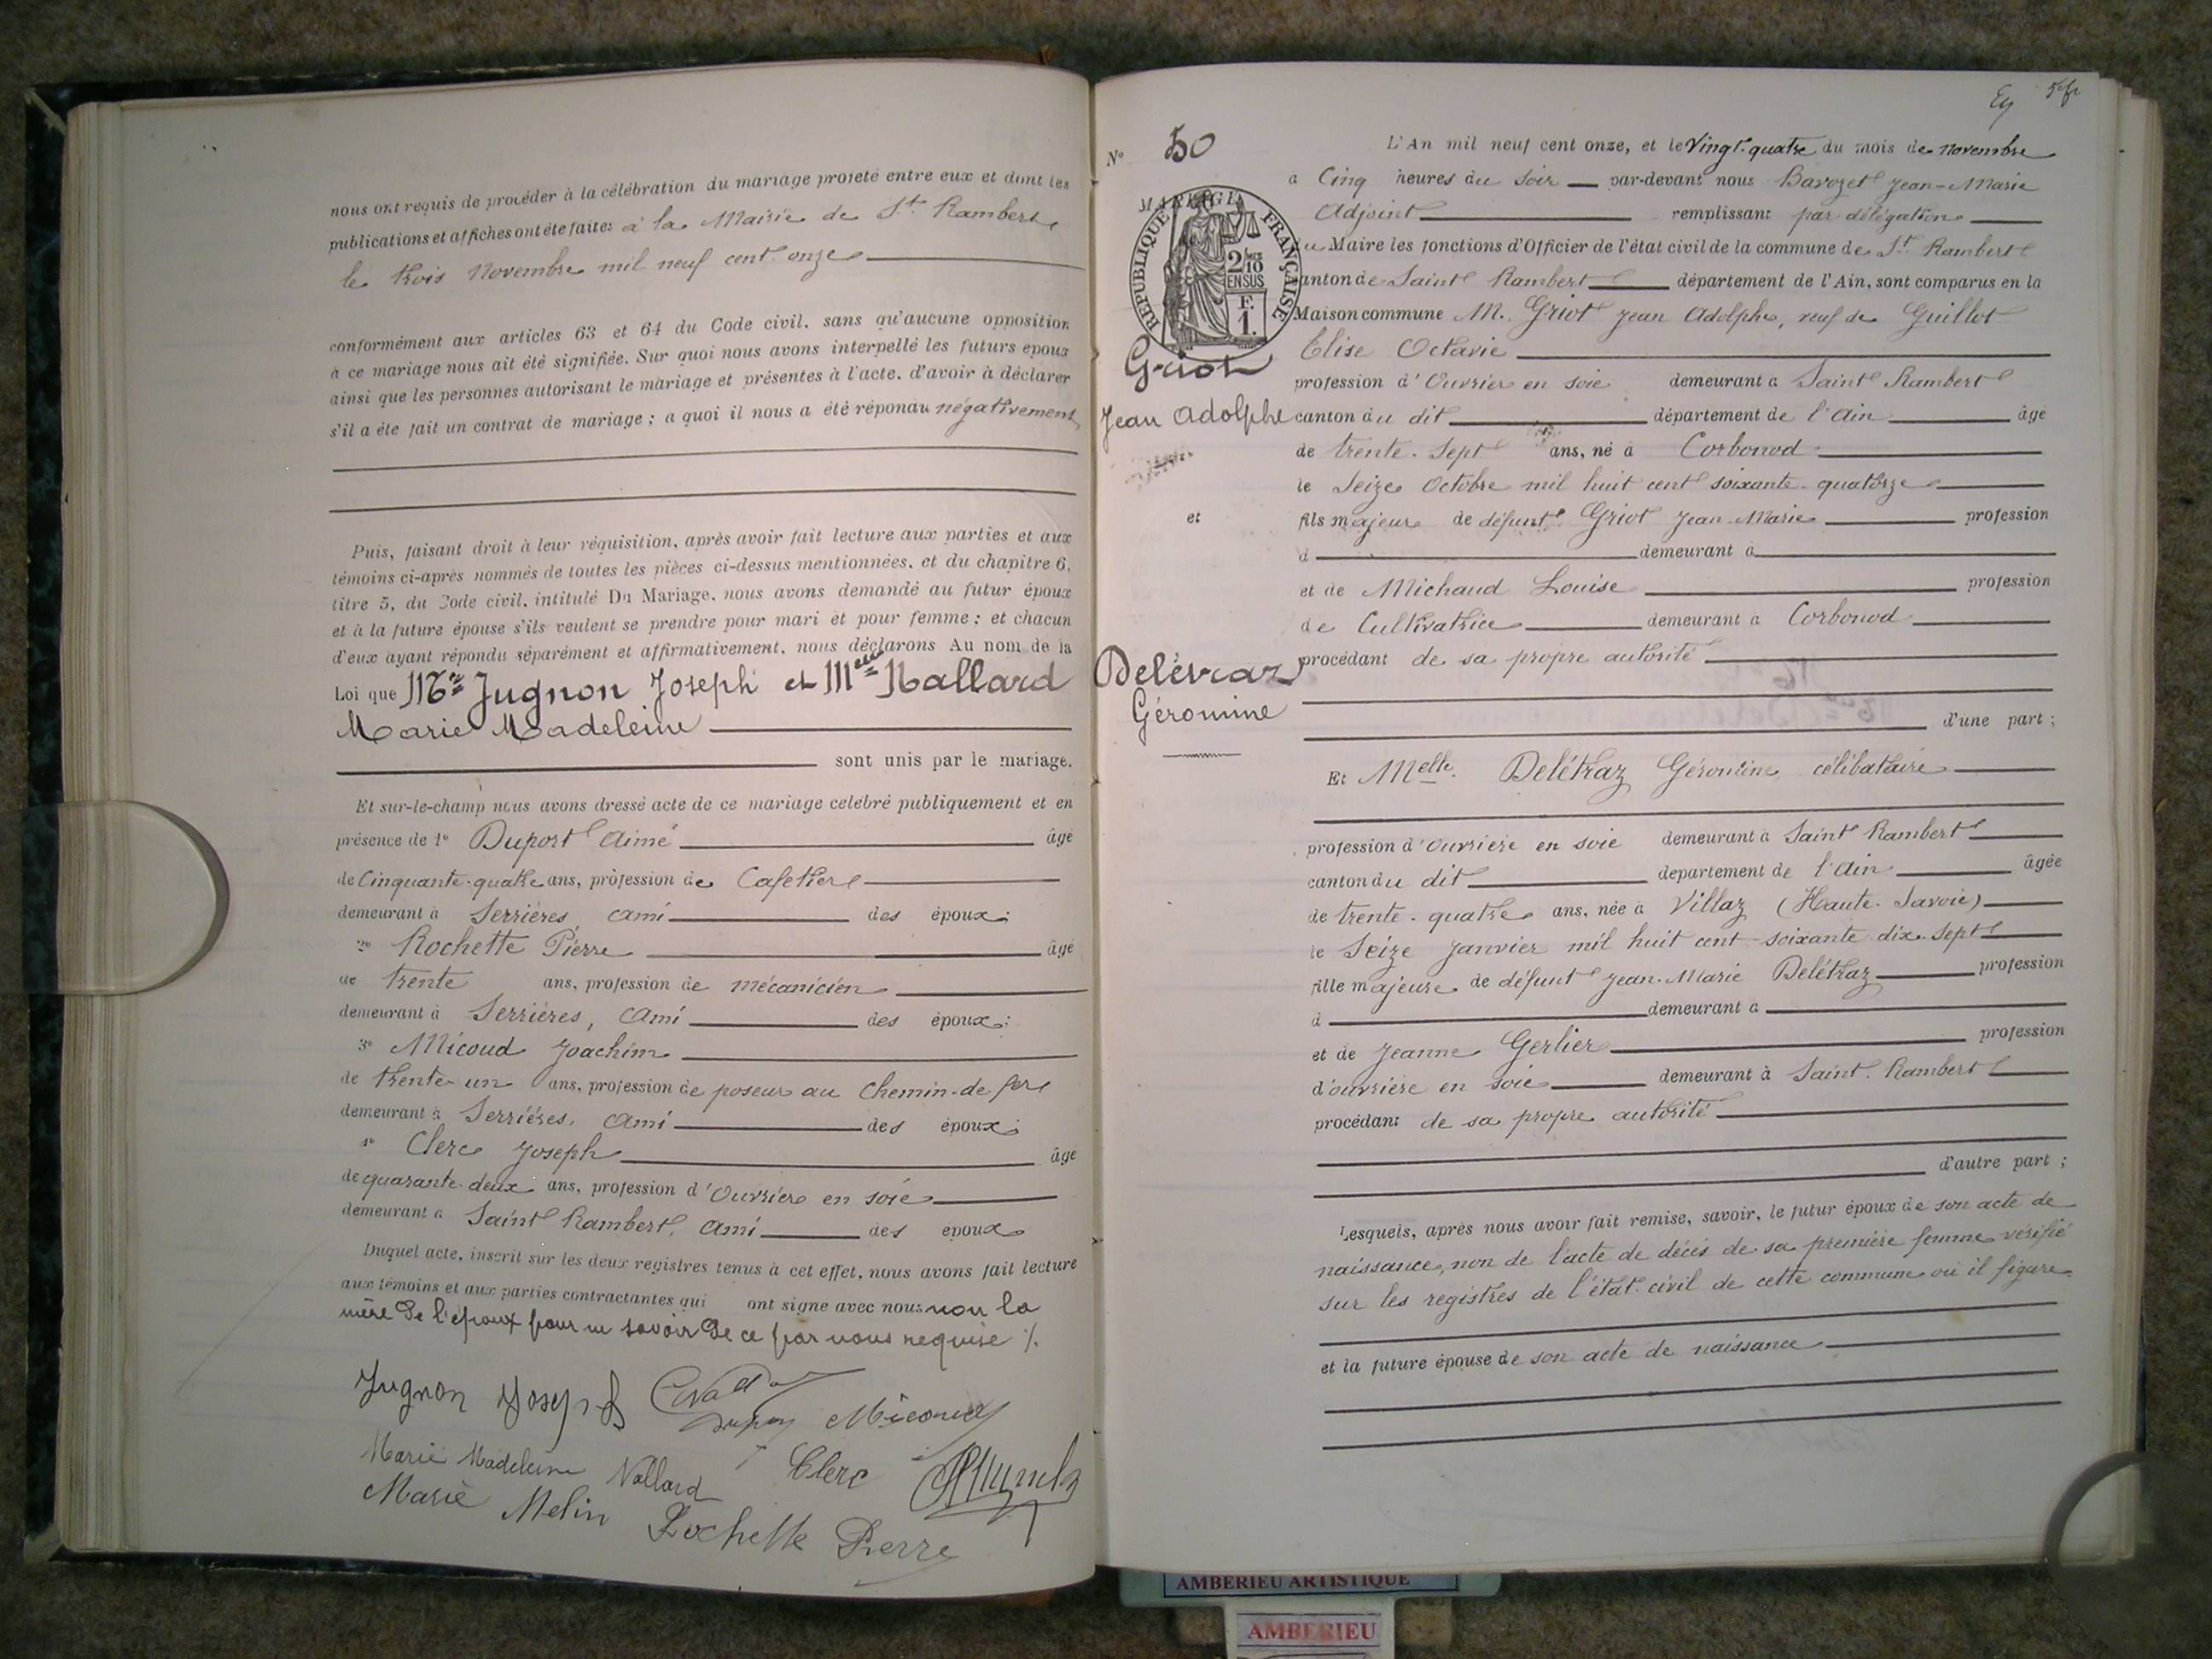 nous ont requis de procéder à la célébration du mariage projeté entre eux et dont les
publications et affiches ont été faites à la Mairie de St. Rambert
le trois Novembre mil neuf cent onze
conformément aux articles 63 et 64 du Code civil, sans qu'aucune opposition
à ce mariage nous ait été signifiée. Sur quoi nous avons interpellé les futurs époux
ainsi que les personnes autorisant le mariage et présentes à l'acte, d'avoir à déclarer
s'il a été fait un contrat de mariage ; a quoi il nous a été répondu négativement
Puis, faisant droit à leur réquisition, après avoir fait lecture aux parties et aux
témoins ci-après nommés de toutes les pièces ci-dessus mentionnées, et du chapitre 6,
titre 5, du Code civil, intitulé Du Mariage, nous avons demandé au futur époux
et à la future épouse s'ils veulent se prendre pour mari et pour femme ; et chacun
d'eux ayant répondu séparément et affirmativement, nous déclarons Au nom de la
Loi que Mr Jugnon Joseph et Melle Nallard
Marie Madeleine
sont unis par le mariage.
Et sur-le-champ nous avons dressé acte de ce mariage celébré publiquement et en
présence de 1° Duport Aimé âgé
de Cinquante-quatre ans, profession de Cafetier
demeurant à Serrières, ami des époux ;
2° Rochette Pierre âgé
de trente ans, profession de mécanicien
demeurant à Serrières, ami des époux ;
3° Micoud Joachim
de trente-un ans, profession de poseur au Chemin-de-fer
demeurant à Serrières, ami des époux ;
4° Clerc Joseph âgé
de quarante-deux ans, profession d'Ouvrier en soie
demeurant à Saint Rambert, ami des époux
Duquel acte, inscrit sur les deux registres tenus à cet effet, nous avons fait lecture
aux témoins et aux parties contractantes qui ont signé avec nous non la
mère de l'époux pour ne savoir de ce par nous requise /.
Jugnon Joseph
Micoud
Marie Madeleine Nallard Clerc
Marie Melin Rochette Pierre
5 fr
N° 50
L'An mil neuf cent onze, et le Vingt-quatre du mois de novembre
à Cinq heures du soir par-devant nous Bavozet Jean-Marie
Adjoint remplissant par délégation
du Maire les fonctions d'Officier de l'état civil de la commune de St Rambert
canton de Saint Rambert département de l'Ain, sont comparus en la
Maison commune M. Griot Jean Adolphe, veuf de Guillot
Elise Octavie
profession d'Ouvrier en soie demeurant à Saint Rambert
canton du dit département de l'Ain âgé
de trente-sept ans, né à Corbonod
le seize Octobre mil huit cent soixante-quatorze
fils majeur de défunt Griot Jean-Marie profession
d demeurant à
et de Michaud Louise profession
de Cultivatrice demeurant à Corbonod
procédant de sa propre autorité
d'une part ;
MARIAGE
RÉPUBLIQUE FRANÇAISE
2/10 EN SUS
F. 1.
Griot
Jean Adolphe
et
Delétraz
Géromine
Et Melle. Delétraz Géromine célibataire
profession d'ouvrière en soie demeurant à Saint Rambert
canton du dit département de l'Ain âgée
de trente-quatre ans, née à Villaz (Haute-Savoie)
le Seize Janvier mil huit cent soixante-dix-sept
fille majeure de défunt Jean-Marie Delétraz profession
d demeurant à
et de Jeanne Gerlier profession
d'ouvrière en soie demeurant à Saint-Rambert
procédant de sa propre autorité
d'autre part ;
Lesquels, après nous avoir fait remise, savoir, le futur époux de son acte de
naissance, non de l'acte de décès de sa première femme vérifié
sur les registres de l'état-civil de cette commune où il figure
et la future épouse de son acte de naissance
AMBERIEU ARTISTIQUE
AMBERIEU